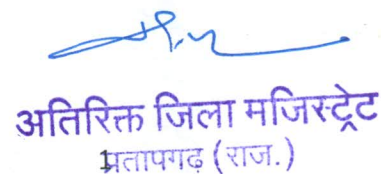 अतिरिक्त जिला मजिस्ट्रेट
1
प्रतापगढ़ (राज.)